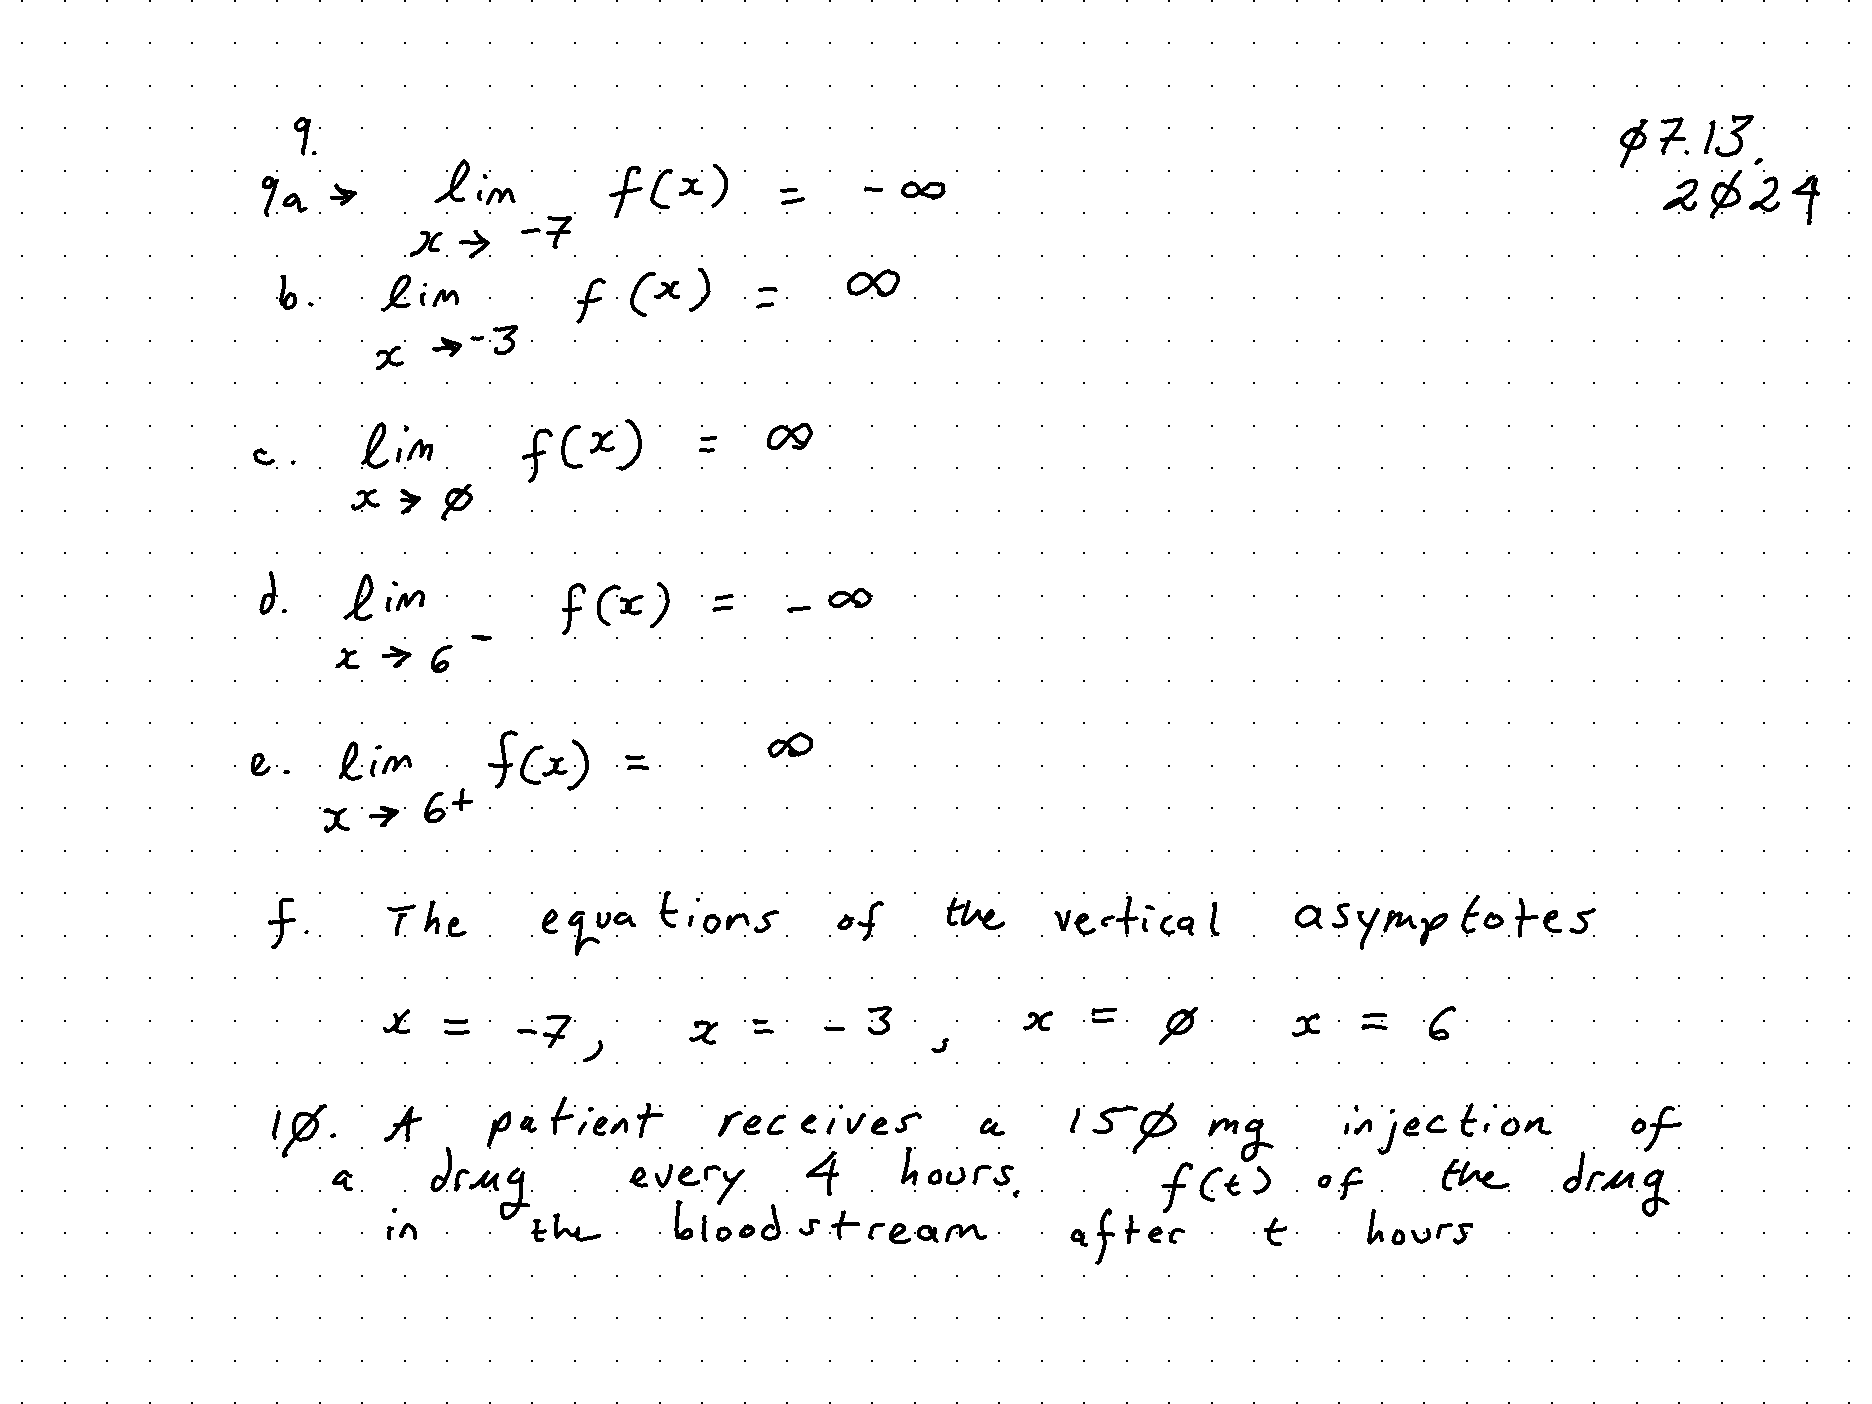 9.
07.13.
2024
9a → lim f(x) = -∞
x → -7
b. lim f(x) = ∞
x → -3
c. lim f(x) = ∞
x → 0
d. lim f(x) = -∞
x → 6⁻
e. lim f(x) = ∞
x → 6⁺
f. The equations of the vertical asymptotes
x = -7, x = -3, x = 0 x = 6
10. A patient receives a 150 mg injection of
a drug every 4 hours. f(t) of the drug
in the bloodstream after t hours